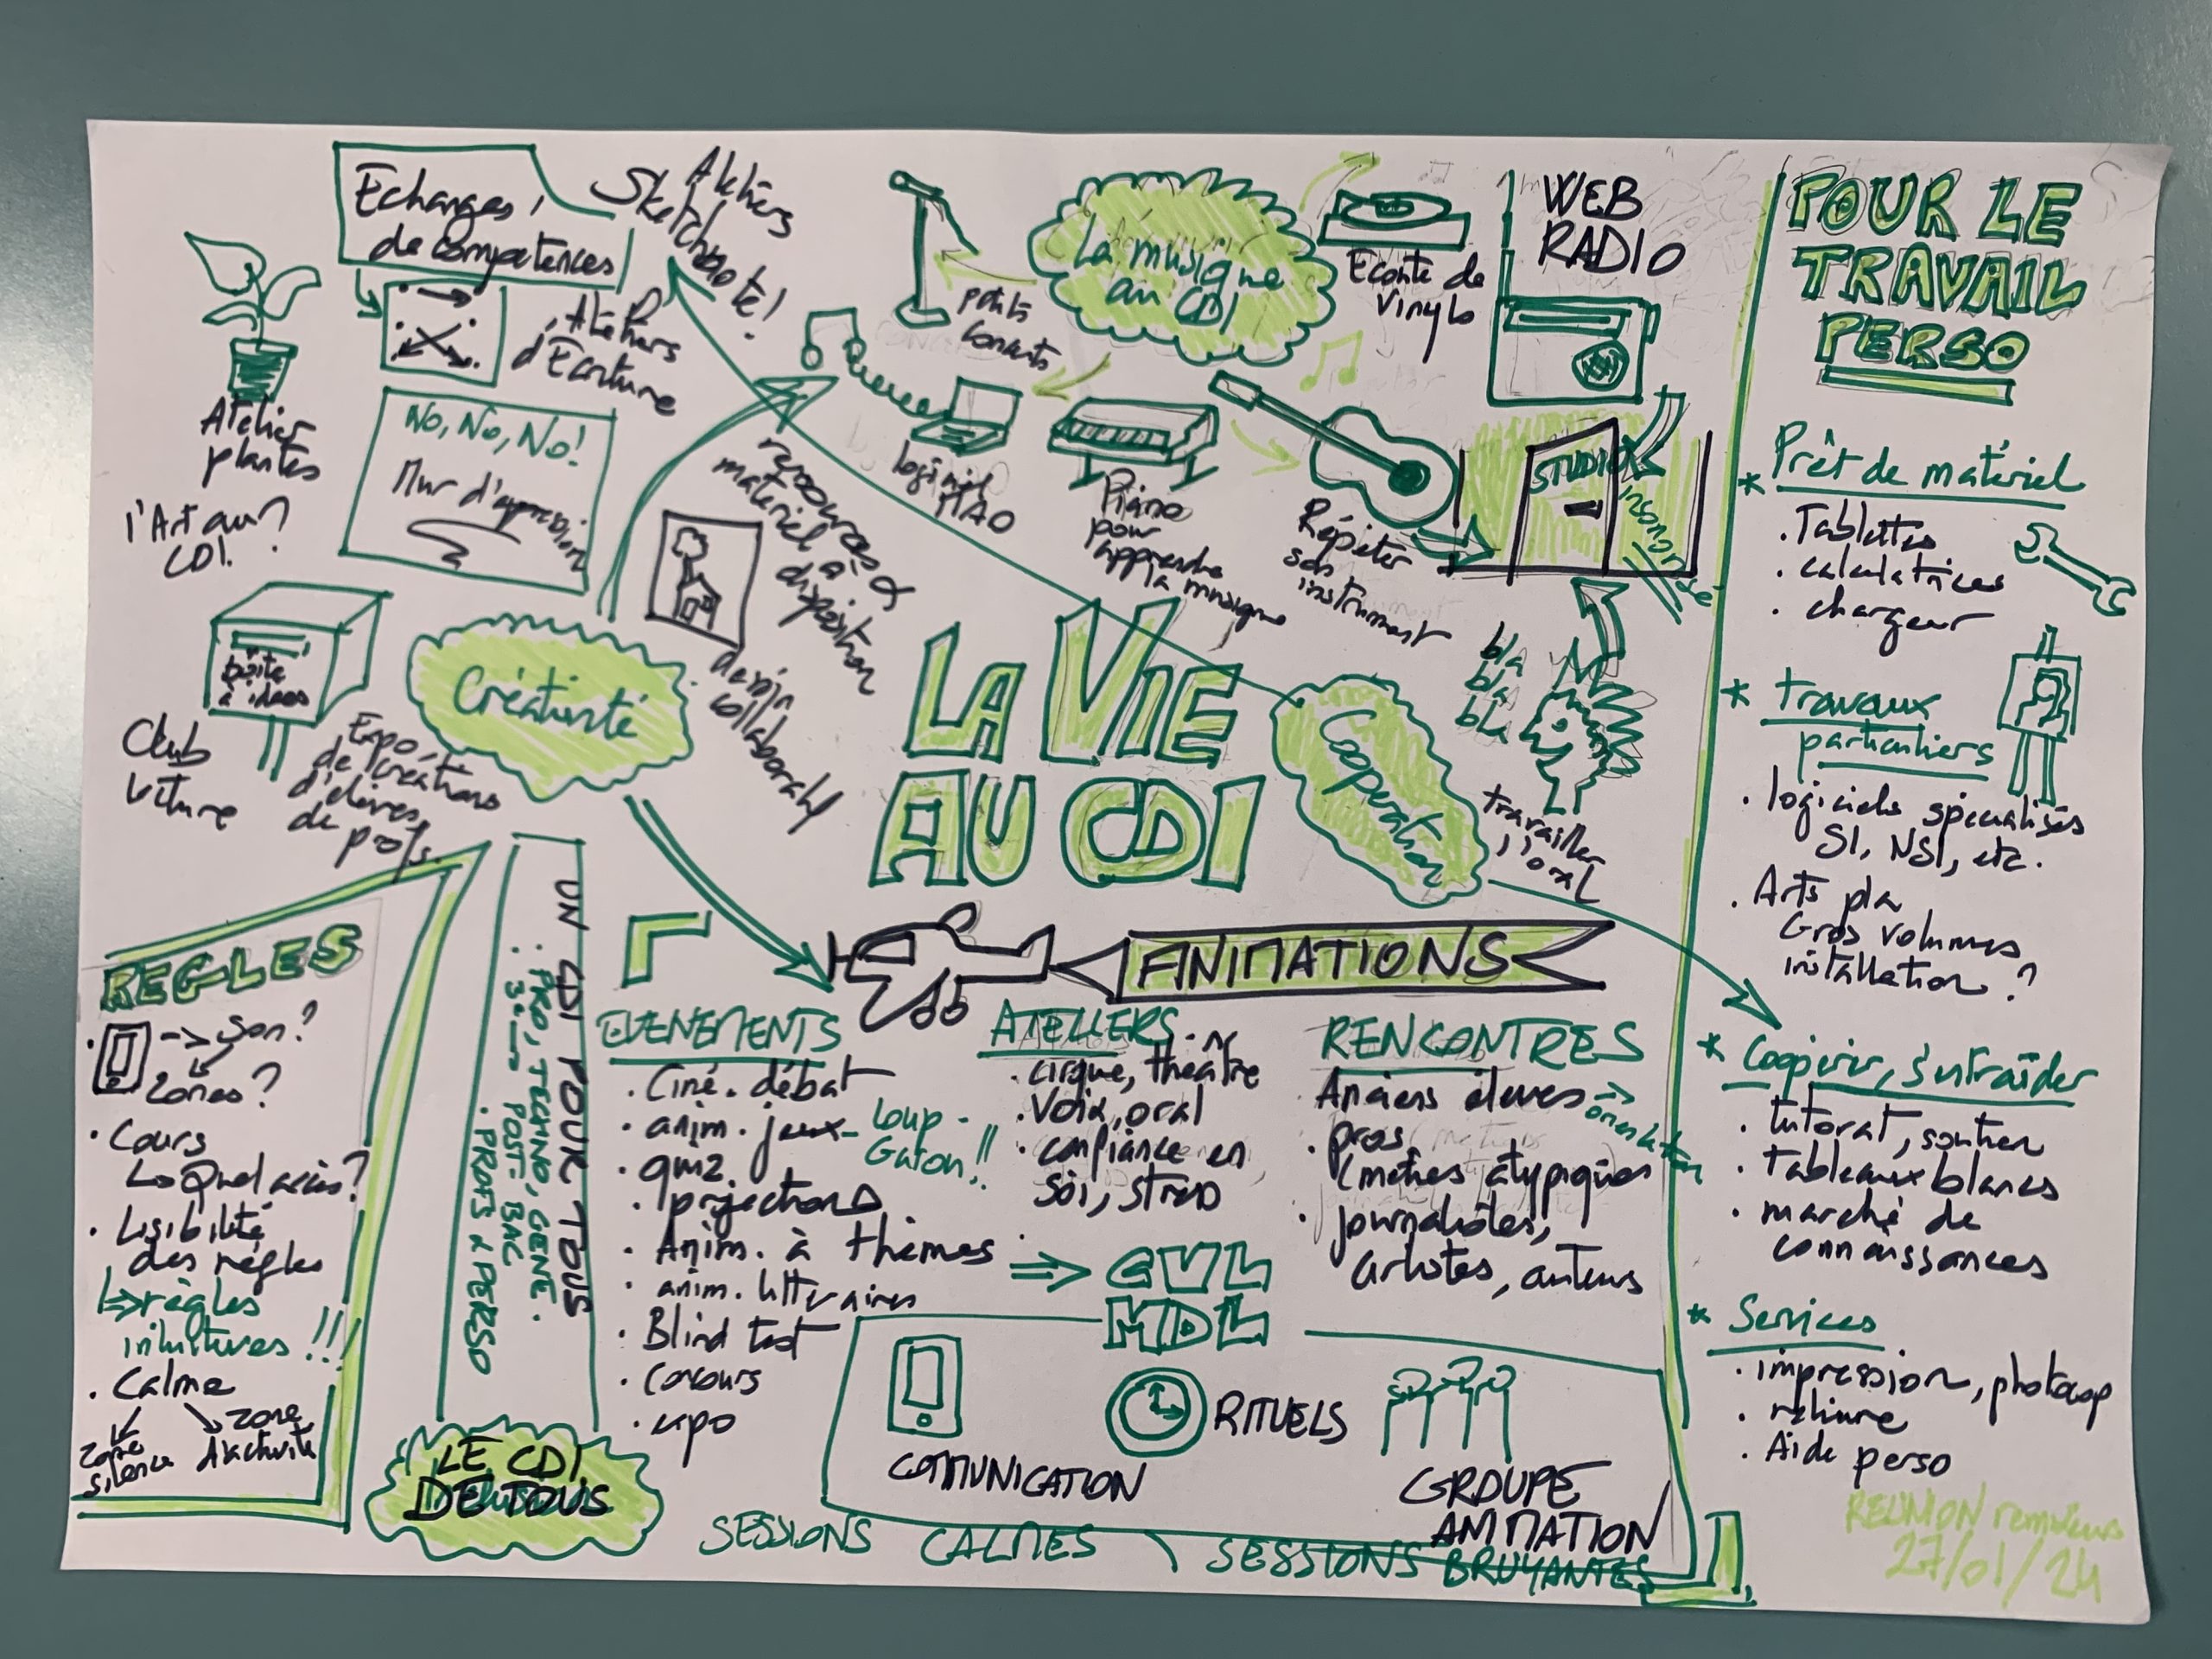 Echanges
de compétences
Ateliers
Sketchnote!
Ateliers
d'Ecriture
Atelier
plantes
l'Art au
CDI?
NO, NO, NO!
Mur d'expression
boîte
à idées
Club
lecture
Expo
de créations
d'élèves,
de profs.
Créativité
ressources &
matériel à
disposition
dessin
collaboratif
La musique
au CDI
petits
concerts
logiciel
MAO
Piano
pour
apprendre
la musique
Ecoute de
vinyls
Répéter
son
instrument
WEB
RADIO
STUDIO
insonorisé
bla
bla
bla
travailler
l'oral
LA VIE
AU CDI
Coopération
POUR LE
TRAVAIL
PERSO
* Prêt de matériel
. Tablettes
. calculatrices
. chargeur
* travaux
particuliers
. logiciels spécialisés
SI, NSI, etc.
. Arts pla
Gros volumes
installation ?
* Coopérer, s'entraîder
. tutorat, soutien
. tableaux blancs
. marché de
connaissances
* Services
. impression, photocop
. reliure
. Aide perso
REGLES
. -> son?
zones?
. Cours
Quel accès?
. Lisibilité
des règles
règles
intuitives !!!
. Calme
zone
silence
zone
d'activité
UN CDI POUR TOUS
. PRO, TECHNO, GENE.
. 3e -> POST-BAC
. PROFS & PERSO
LE CDI
DE TOUS
ANIMATIONS
EVENEMENTS
. Ciné-débat
. anim. jeux - Loup-
Garou!!
. quiz
. projections
. Anim. à thèmes
. anim. littéraires
. Blind test
. Concours
. expo
ATELIERS
. cirque, théâtre
. Voix, oral
. confiance en
soi, stress
RENCONTRES
Anciens élèves -> orientation
. pros
(métiers atypiques
. journalistes,
artistes, auteurs
=> CVL
MDL
COMMUNICATION
RITUELS
GROUPE
ANIMATION
SESSIONS CALMES \ SESSIONS BRUYANTES
REUNION
27/01/24